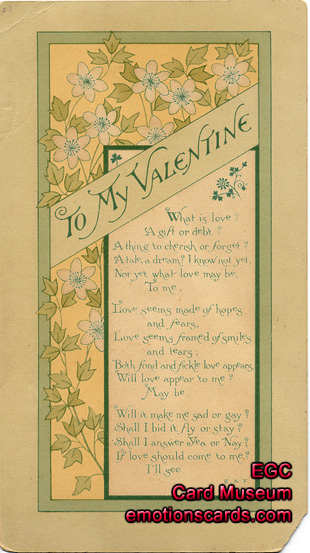 To My Valentine
What is love?
A gift or debt?
A thing to cherish or forget?
A tale, a dream? I know not yet,
Nor yet, what love may be,
To me.
Love seems made of hopes
and fears,
Love seems framed of smiles
and tears;
Both fond and fickle love appears,
Will love appear to me?
May be.
Will it make me sad or gay?
Shall I bid it fly or stay?
Shall I answer Yea or Nay?
If love should come to me,
I'll see.
EGC
Card Museum
emotionscards.com